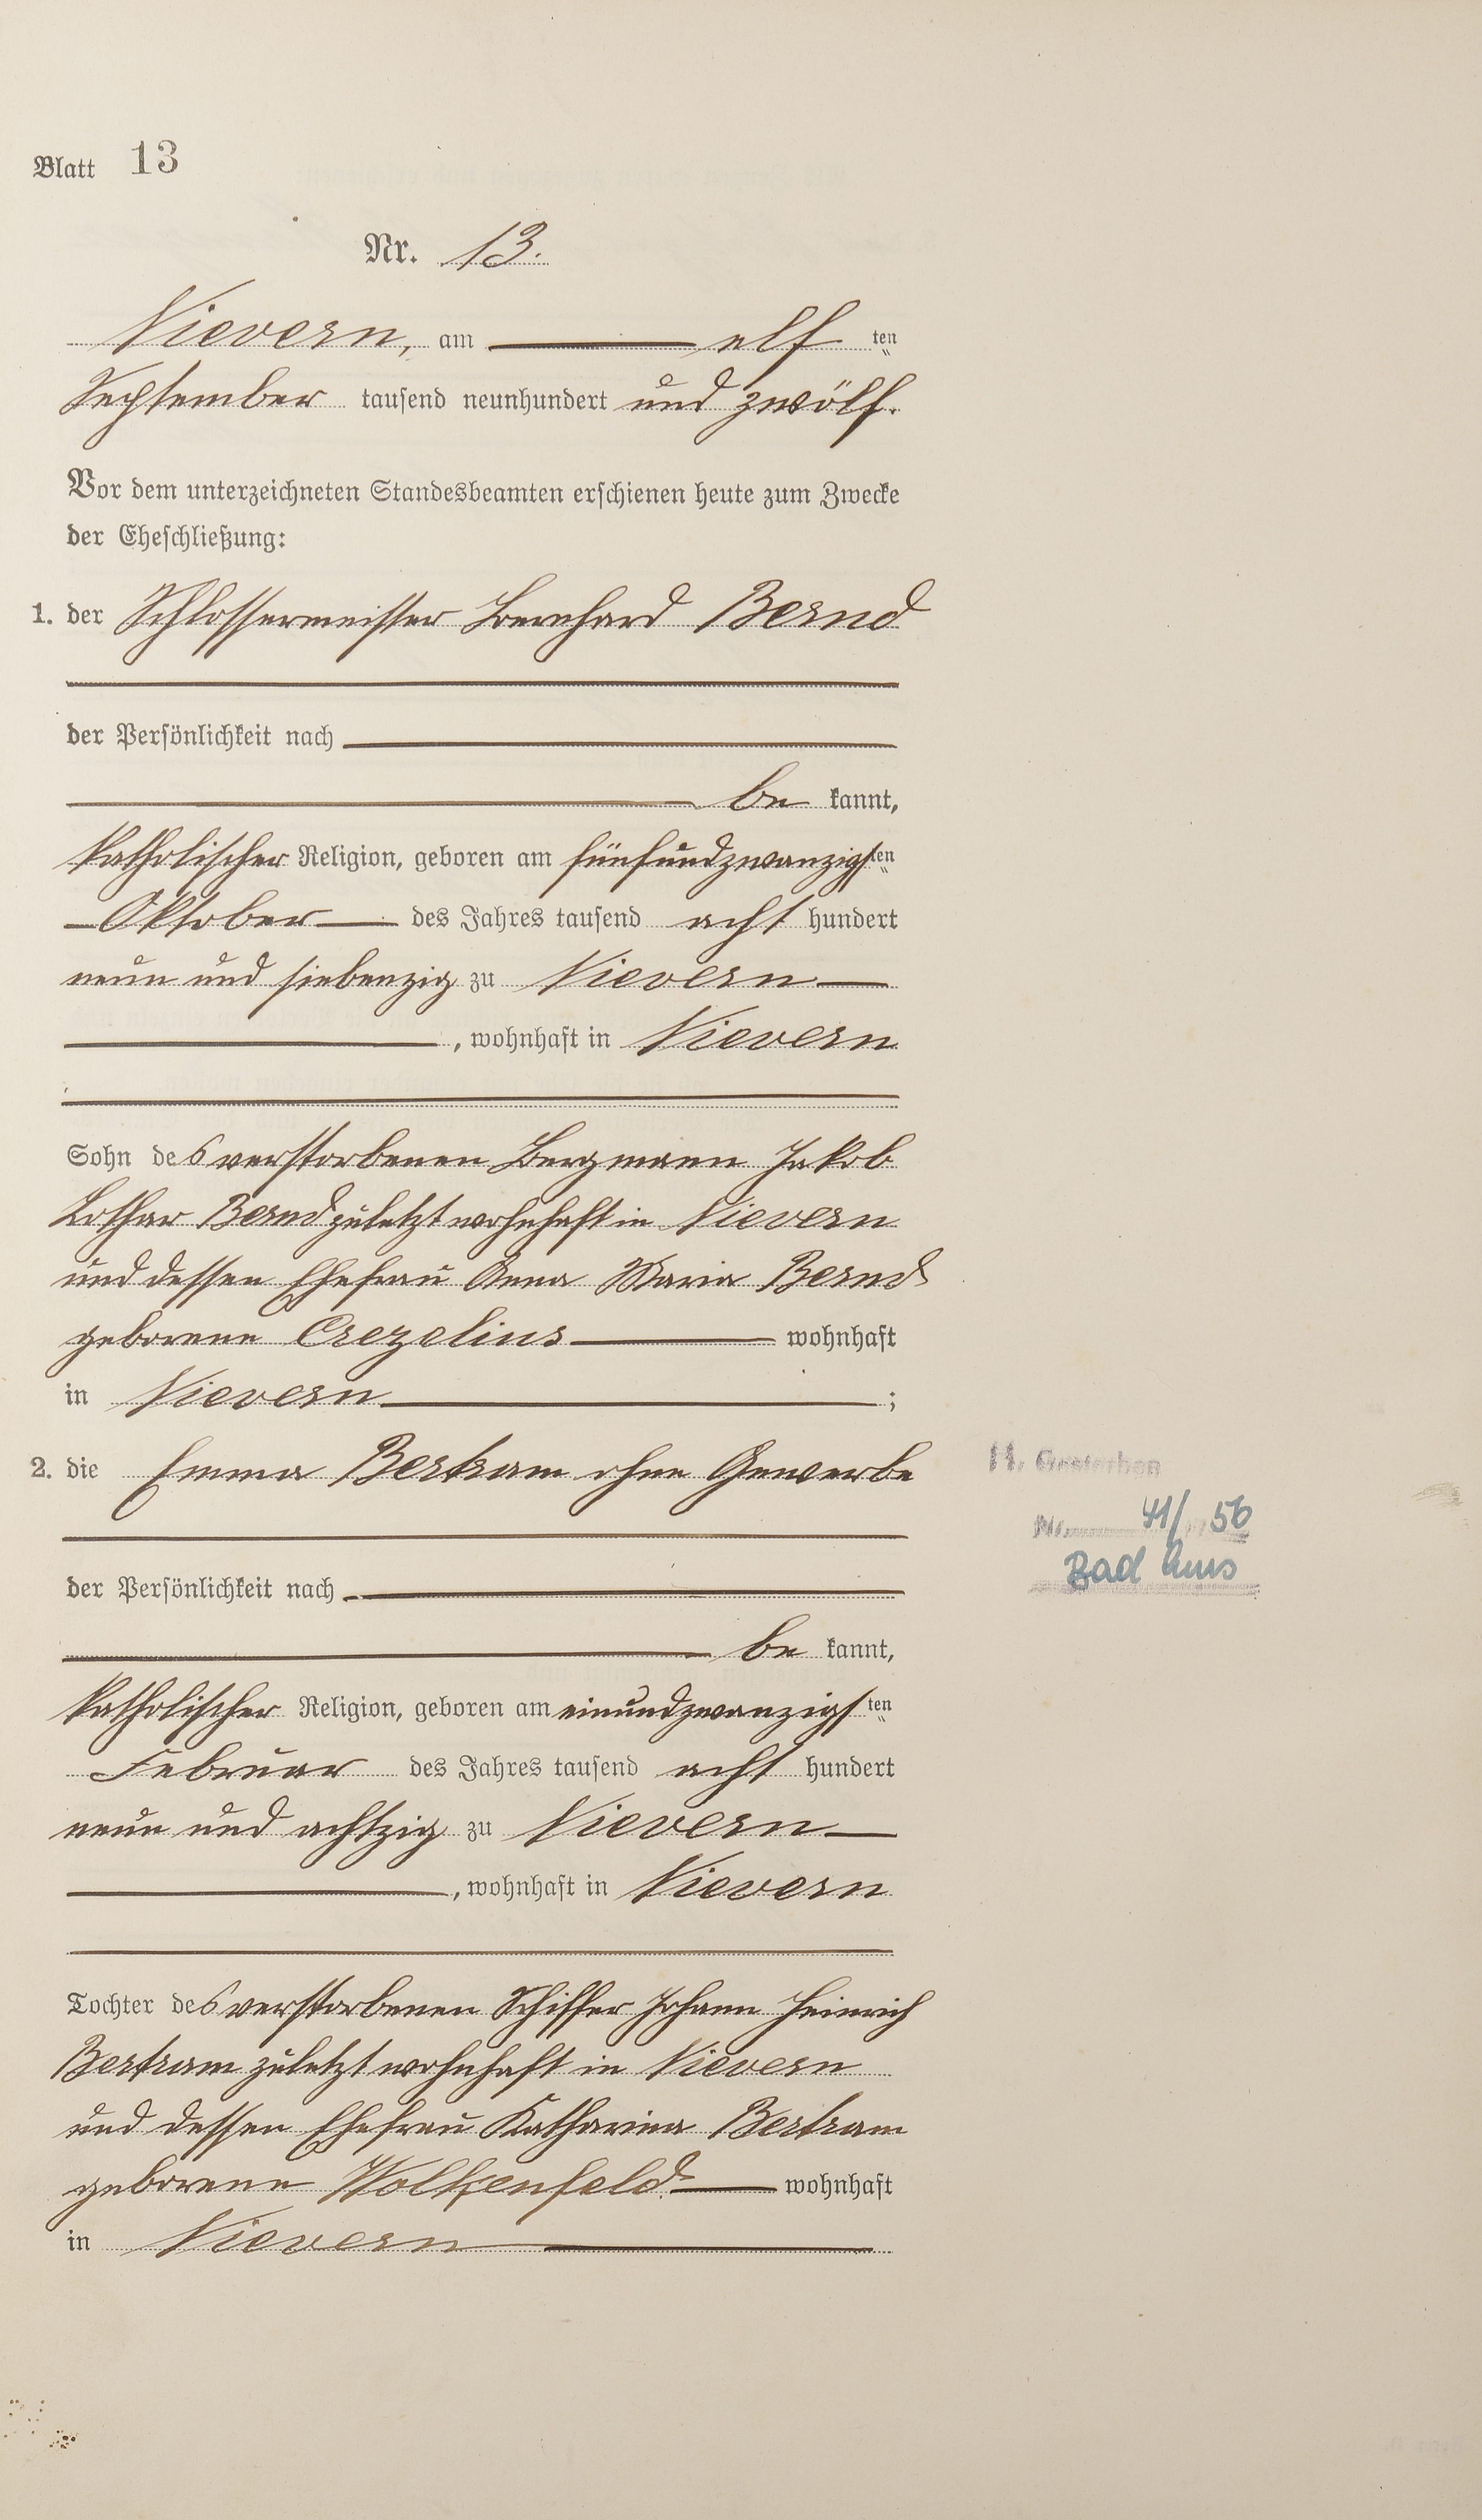 Blatt 13
Nr. 13.
Nievern, am elf ten
September tausend neunhundert und zwölf.
Vor dem unterzeichneten Standesbeamten erschienen heute zum Zwecke
der Eheschließung:
1. der Schlossermeister Bernhard Bernd
der Persönlichkeit nach
be kannt,
katholischer Religion, geboren am fünfundzwanzigsten
Oktober des Jahres tausend acht hundert
neun und siebenzig zu Nievern
, wohnhaft in Nievern
Sohn des verstorbenen Bergmann Jakob
Lothar Bernd zuletzt wohnhaft in Nievern
und dessen Ehefrau Anna Maria Bernd
geborene Crezelius wohnhaft
in Nievern ;
2. die Emma Bertram ohne Gewerbe
H. Gestorben
Nr. 41/56
Bad Ems
der Persönlichkeit nach
be kannt,
katholischer Religion, geboren am einundzwanzigsten
Februar des Jahres tausend acht hundert
neun und achtzig zu Nievern
, wohnhaft in Nievern
Tochter des verstorbenen Schiffer Johann Heinrich
Bertram zuletzt wohnhaft in Nievern
und dessen Ehefrau Katharina Bertram
geborene Wolkenfeld wohnhaft
in Nievern